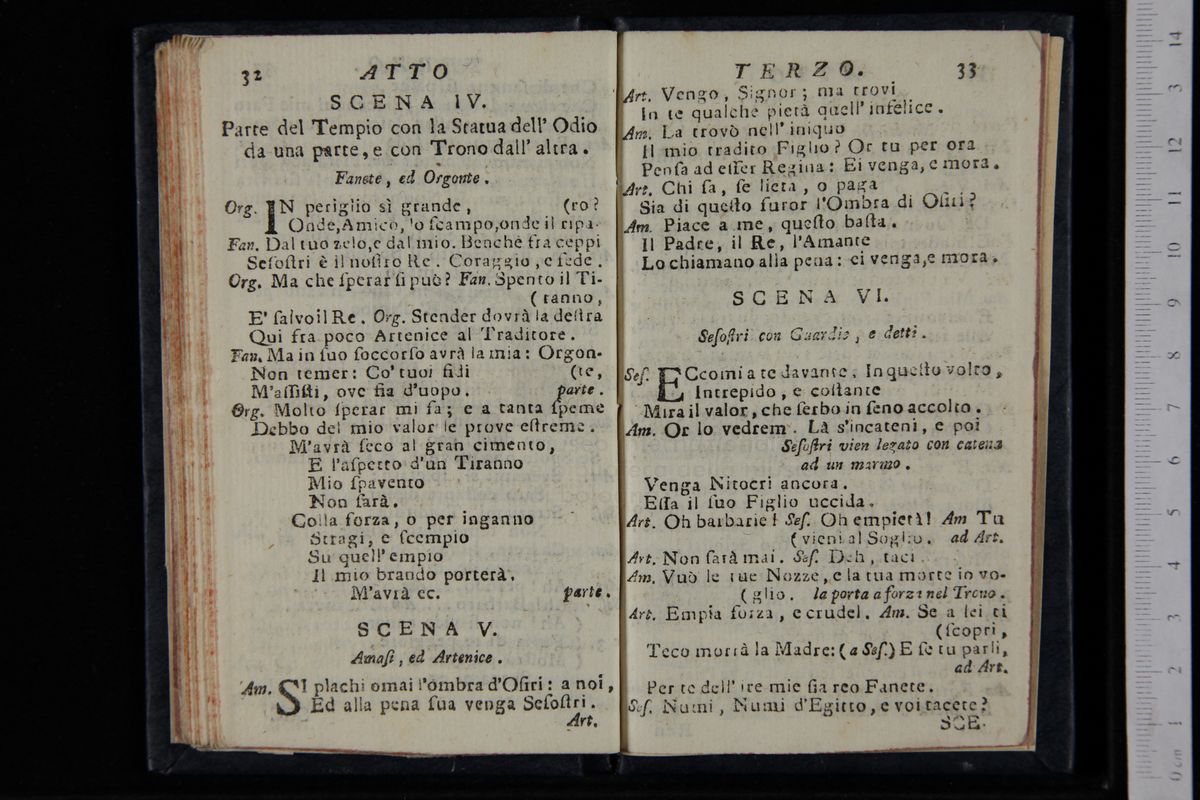 32 ATTO
SCENA IV.
Parte del Tempio con la Statua dell' Odio
da una parte, e con Trono dall' altra.
Fanete, ed Orgonte.
Org. IN periglio sì grande, (ro?
Onde, Amico, lo ſcampo, onde il ripa-
Fan. Dal tuo zelo, e dal mio. Benchè fra ceppi
Seſoſtri è il noſtro Re. Coraggio, e fede.
Org. Ma che ſperar ſi può? Fan. Spento il Ti-
(ranno,
E' ſalvo il Re. Org. Stender dovrà la deſtra
Qui fra poco Artenice al Traditore.
Fan. Ma in ſuo ſoccorſo avrà la mia: Orgon-
Non temer: Co' tuoi fidi (te,
M'aſſiſti, ove fia d'uopo. parte.
Org. Molto ſperar mi fa; e a tanta ſpeme
Debbo del mio valor le prove eſtreme.
M'avrà ſeco al gran cimento,
E l'aſpetto d'un Tiranno
Mio ſpavento
Non ſarà.
Colla forza, o per inganno
Stragi, e ſcempio
Su quell' empio
Il mio brando porterà.
M'avrà ec. parte.
SCENA V.
Amaſi, ed Artenice.
Am. SI plachi omai l'ombra d'Oſiri: a noi,
Ed alla pena ſua venga Seſoſtri.
Art.
TERZO. 33
Art. Vengo, Signor; ma trovi
In te qualche pietà quell' infelice.
Am. La trovò nell' iniquo
Il mio tradito Figlio? Or tu per ora
Penſa ad eſſer Regina: Ei venga, e mora.
Art. Chi ſa, ſe lieta, o paga
Sia di queſto furor l'Ombra di Oſiri?
Am. Piace a me, queſto baſta.
Il Padre, il Re, l'Amante
Lo chiamano alla pena: ei venga, e mora.
SCENA VI.
Seſoſtri con Guardie, e detti.
Seſ. ECcomi a te davante. In queſto volto,
Intrepido, e coſtante
Mira il valor, che ſerbo in ſeno accolto.
Am. Or lo vedrem. Là s'incateni, e poi
Seſoſtri vien legato con catena
ad un marmo.
Venga Nitocri ancora.
Eſſa il ſuo Figlio uccida.
Art. Oh barbarie! Seſ. Oh empietà! Am Tu
(vieni al Soglio. ad Art.
Art. Non ſarà mai. Seſ. Deh, taci.
Am. Vuò le tue Nozze, e la tua morte io vo-
(glio. la porta a forza nel Trono.
Art. Empia forza, e crudel. Am. Se a lei ti
(ſcopri,
Teco morrà la Madre: (a Seſ.) E ſe tu parli,
ad Art.
Per te dell' ire mie ſia reo Fanete.
Seſ. Numi, Numi d'Egitto, e voi tacete?
SCE-
0 cm 1 2 3 4 5 6 7 8 9 10 11 12 13 14